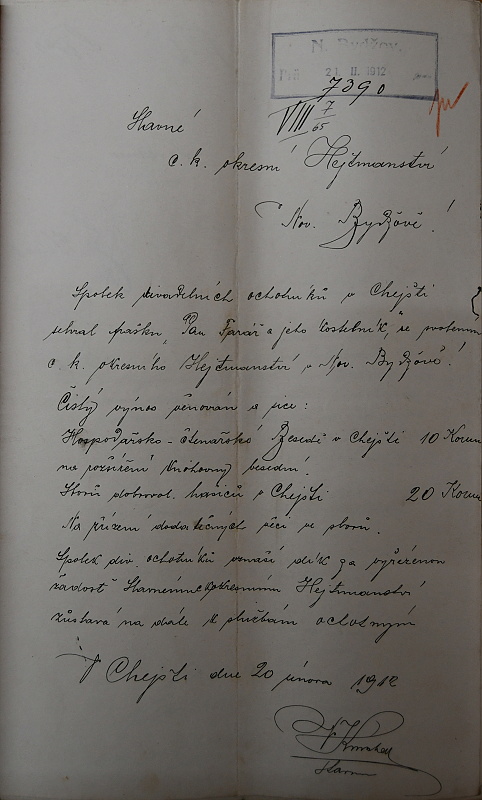 N. Bydžov.
21. II. 1912
7390
VIII 7/65
Slavné
c. k. okresní Hejtmanství
v Nov. Bydžově!
Spolek divadelních ochotníků v Chejšti
sehrál frašku, "Pan Farář a jeho kostelník", se svolením
c. k. okresního Hejtmanství v Nov. Bydžově!
Čistý výnos věnován a sice:
Hospodářsko-čtenářské Besedě v Chejšti 10 Korun
na rozšíření knihovny besední.
Sboru dobrovol. hasičů v Chejšti 20 Korun
Na přízení dodatečných věcí ve sboru.
Spolek div. ochotníků vznáší dík za vyřízenou
žádost Slavnému c. k. okresnímu Hejtmanství
zůstává na dále k službám ochotným
V Chejšti dne 20 února 1912